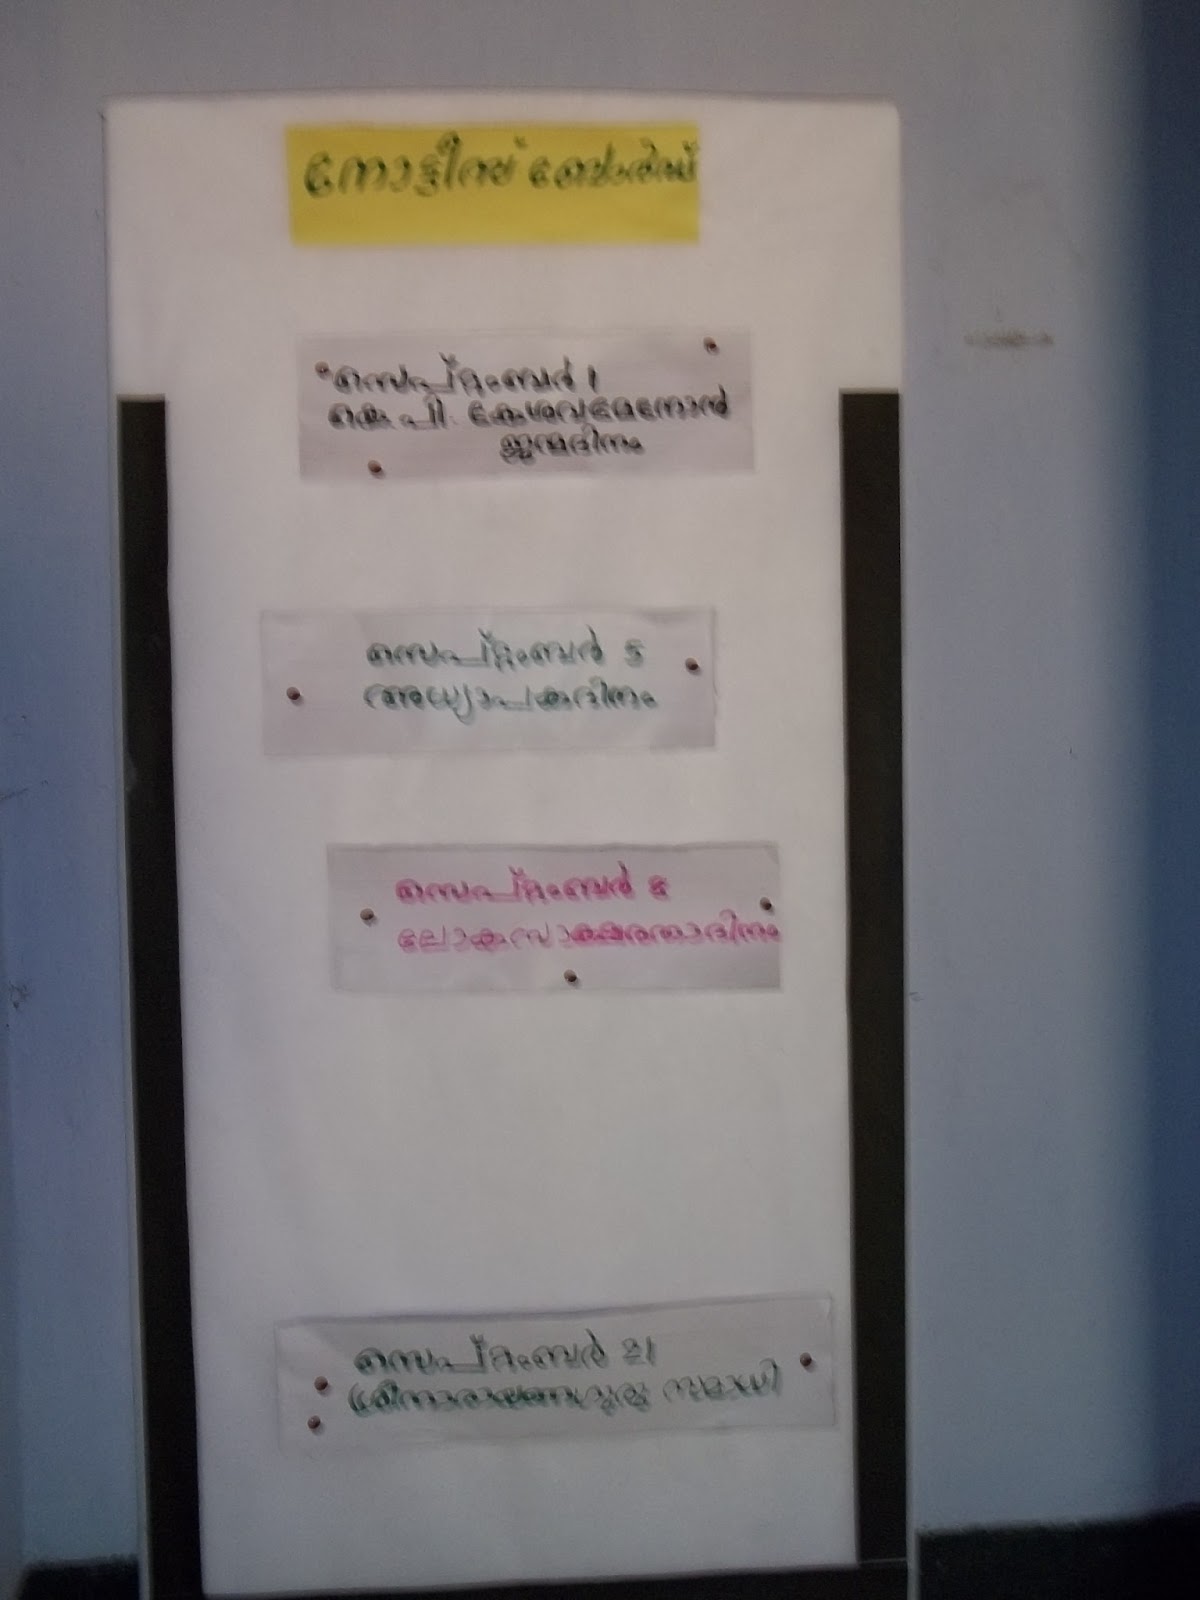 നോട്ടീസ് ബോർഡ്
സെപ്റ്റംബർ 1
കെ. പി. കേശവമേനോൻ
ജന്മദിനം
സെപ്റ്റംബർ 5
അധ്യാപകദിനം
സെപ്റ്റംബർ 8
ലോകസാക്ഷരതാദിനം
സെപ്റ്റംബർ 21
ശ്രീനാരായണഗുരു സമാധി